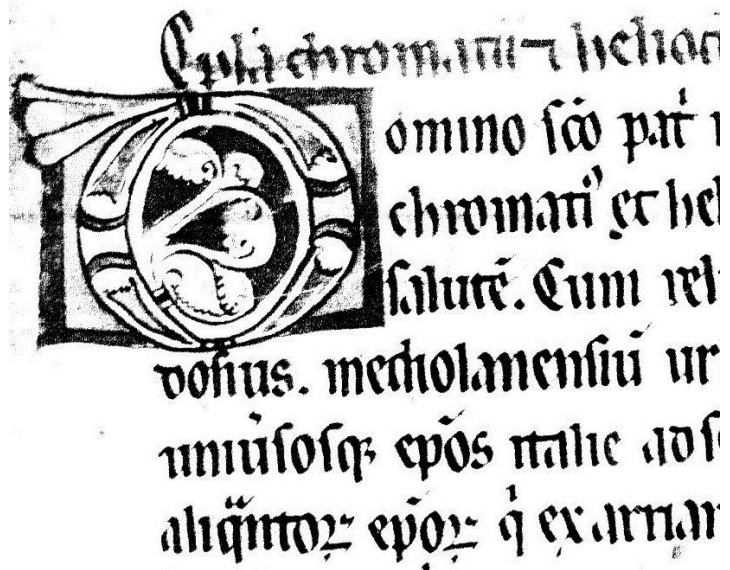 Epla chromatii ⁊ heliod
Domino sc̄o pat̄
chromati᾿ et hel
salutē. Cum rel
dosius. mediolanensiū ur
uniūsosq; ep̄os italie ad
aliq̄ntoꝝ ep̄oꝝ q̇ ex arrian